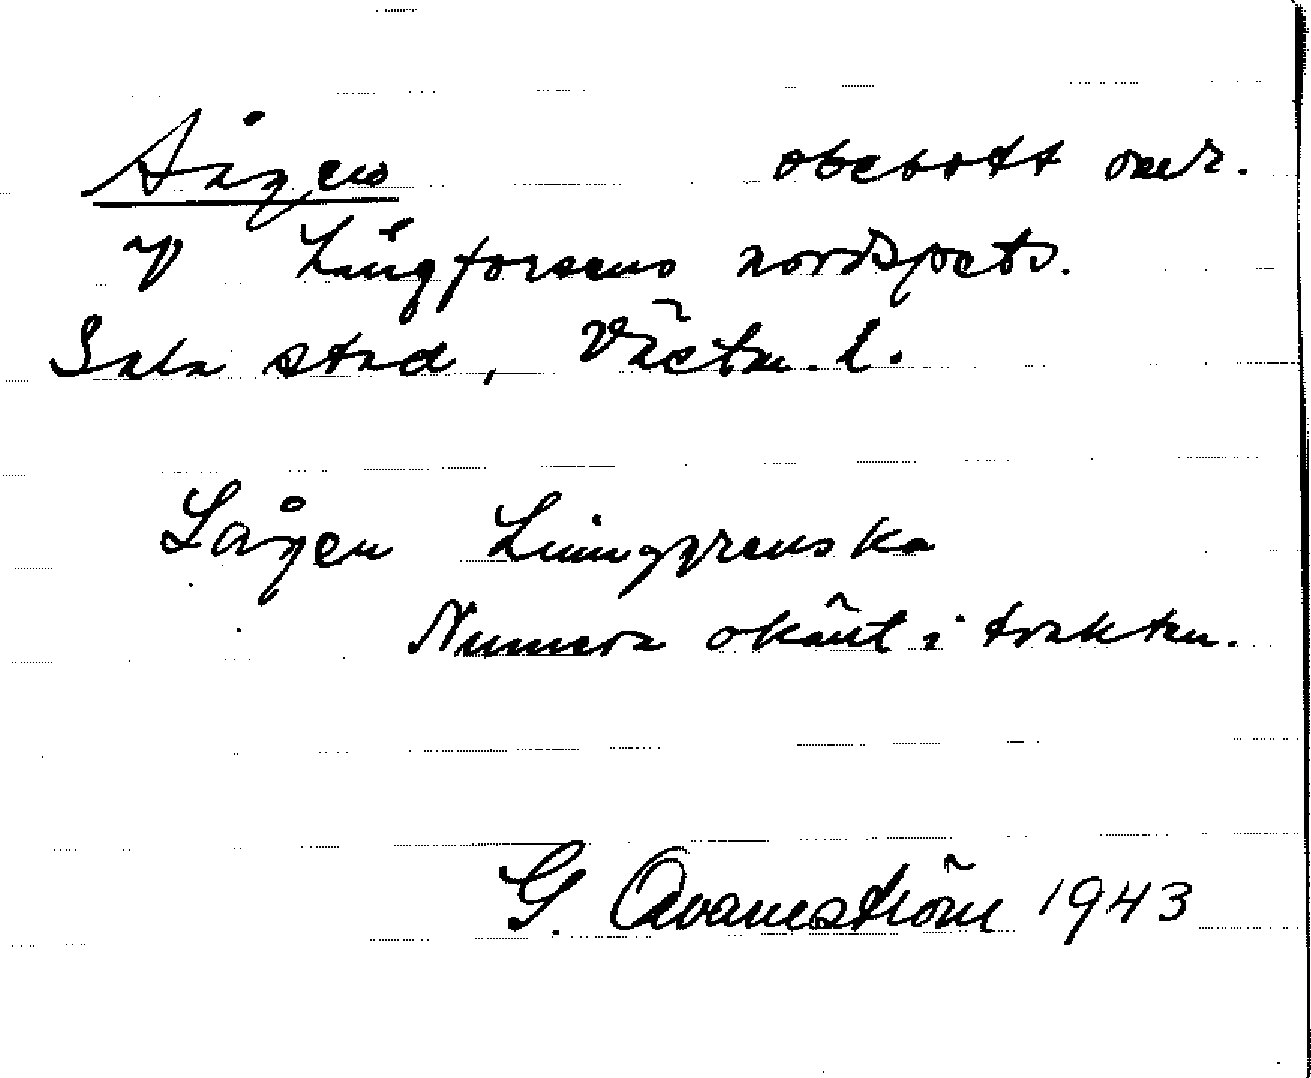 Sågen obebott omr.
v Långforsens nordspets.
Sala stad, Västm. l.
Sågen Ljunggrenska
Numera okänt i trakten.
G. Qvarnström 1943